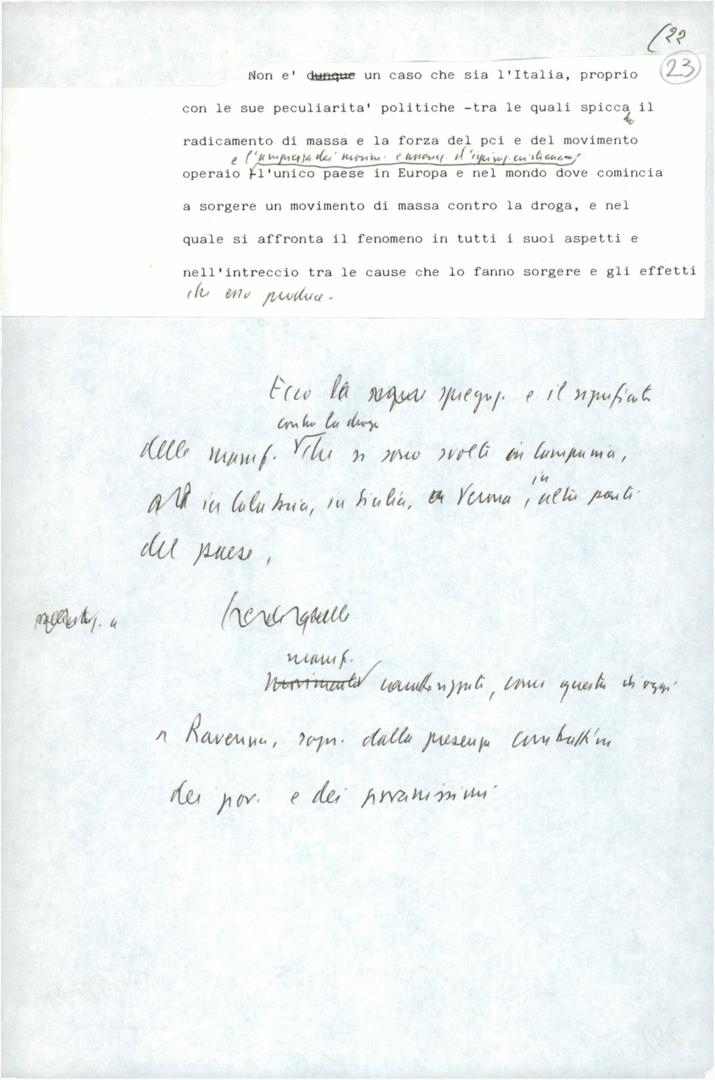 (22
23
Non e' dunque un caso che sia l'Italia, proprio
con le sue peculiarita' politiche -tra le quali spicca il
radicamento di massa e la forza del pci e del movimento
e l'ampiezza dei movim.
operaio l'unico paese in Europa e nel mondo dove comincia
a sorgere un movimento di massa contro la droga, e nel
quale si affronta il fenomeno in tutti i suoi aspetti e
nell'intreccio tra le cause che lo fanno sorgere e gli effetti
che esso produce.
Ecco la spiegaz. e il significato
contro la droga
delle manif. che si sono svolte in Campania,
in Calabria, in Sicilia, a Verona, in altre parti
del paese,
manif.
Movimento caratterizzate, come questa di oggi
a Ravenna, sopr. dalla presenza combattiva
dei giov. e dei giovanissimi